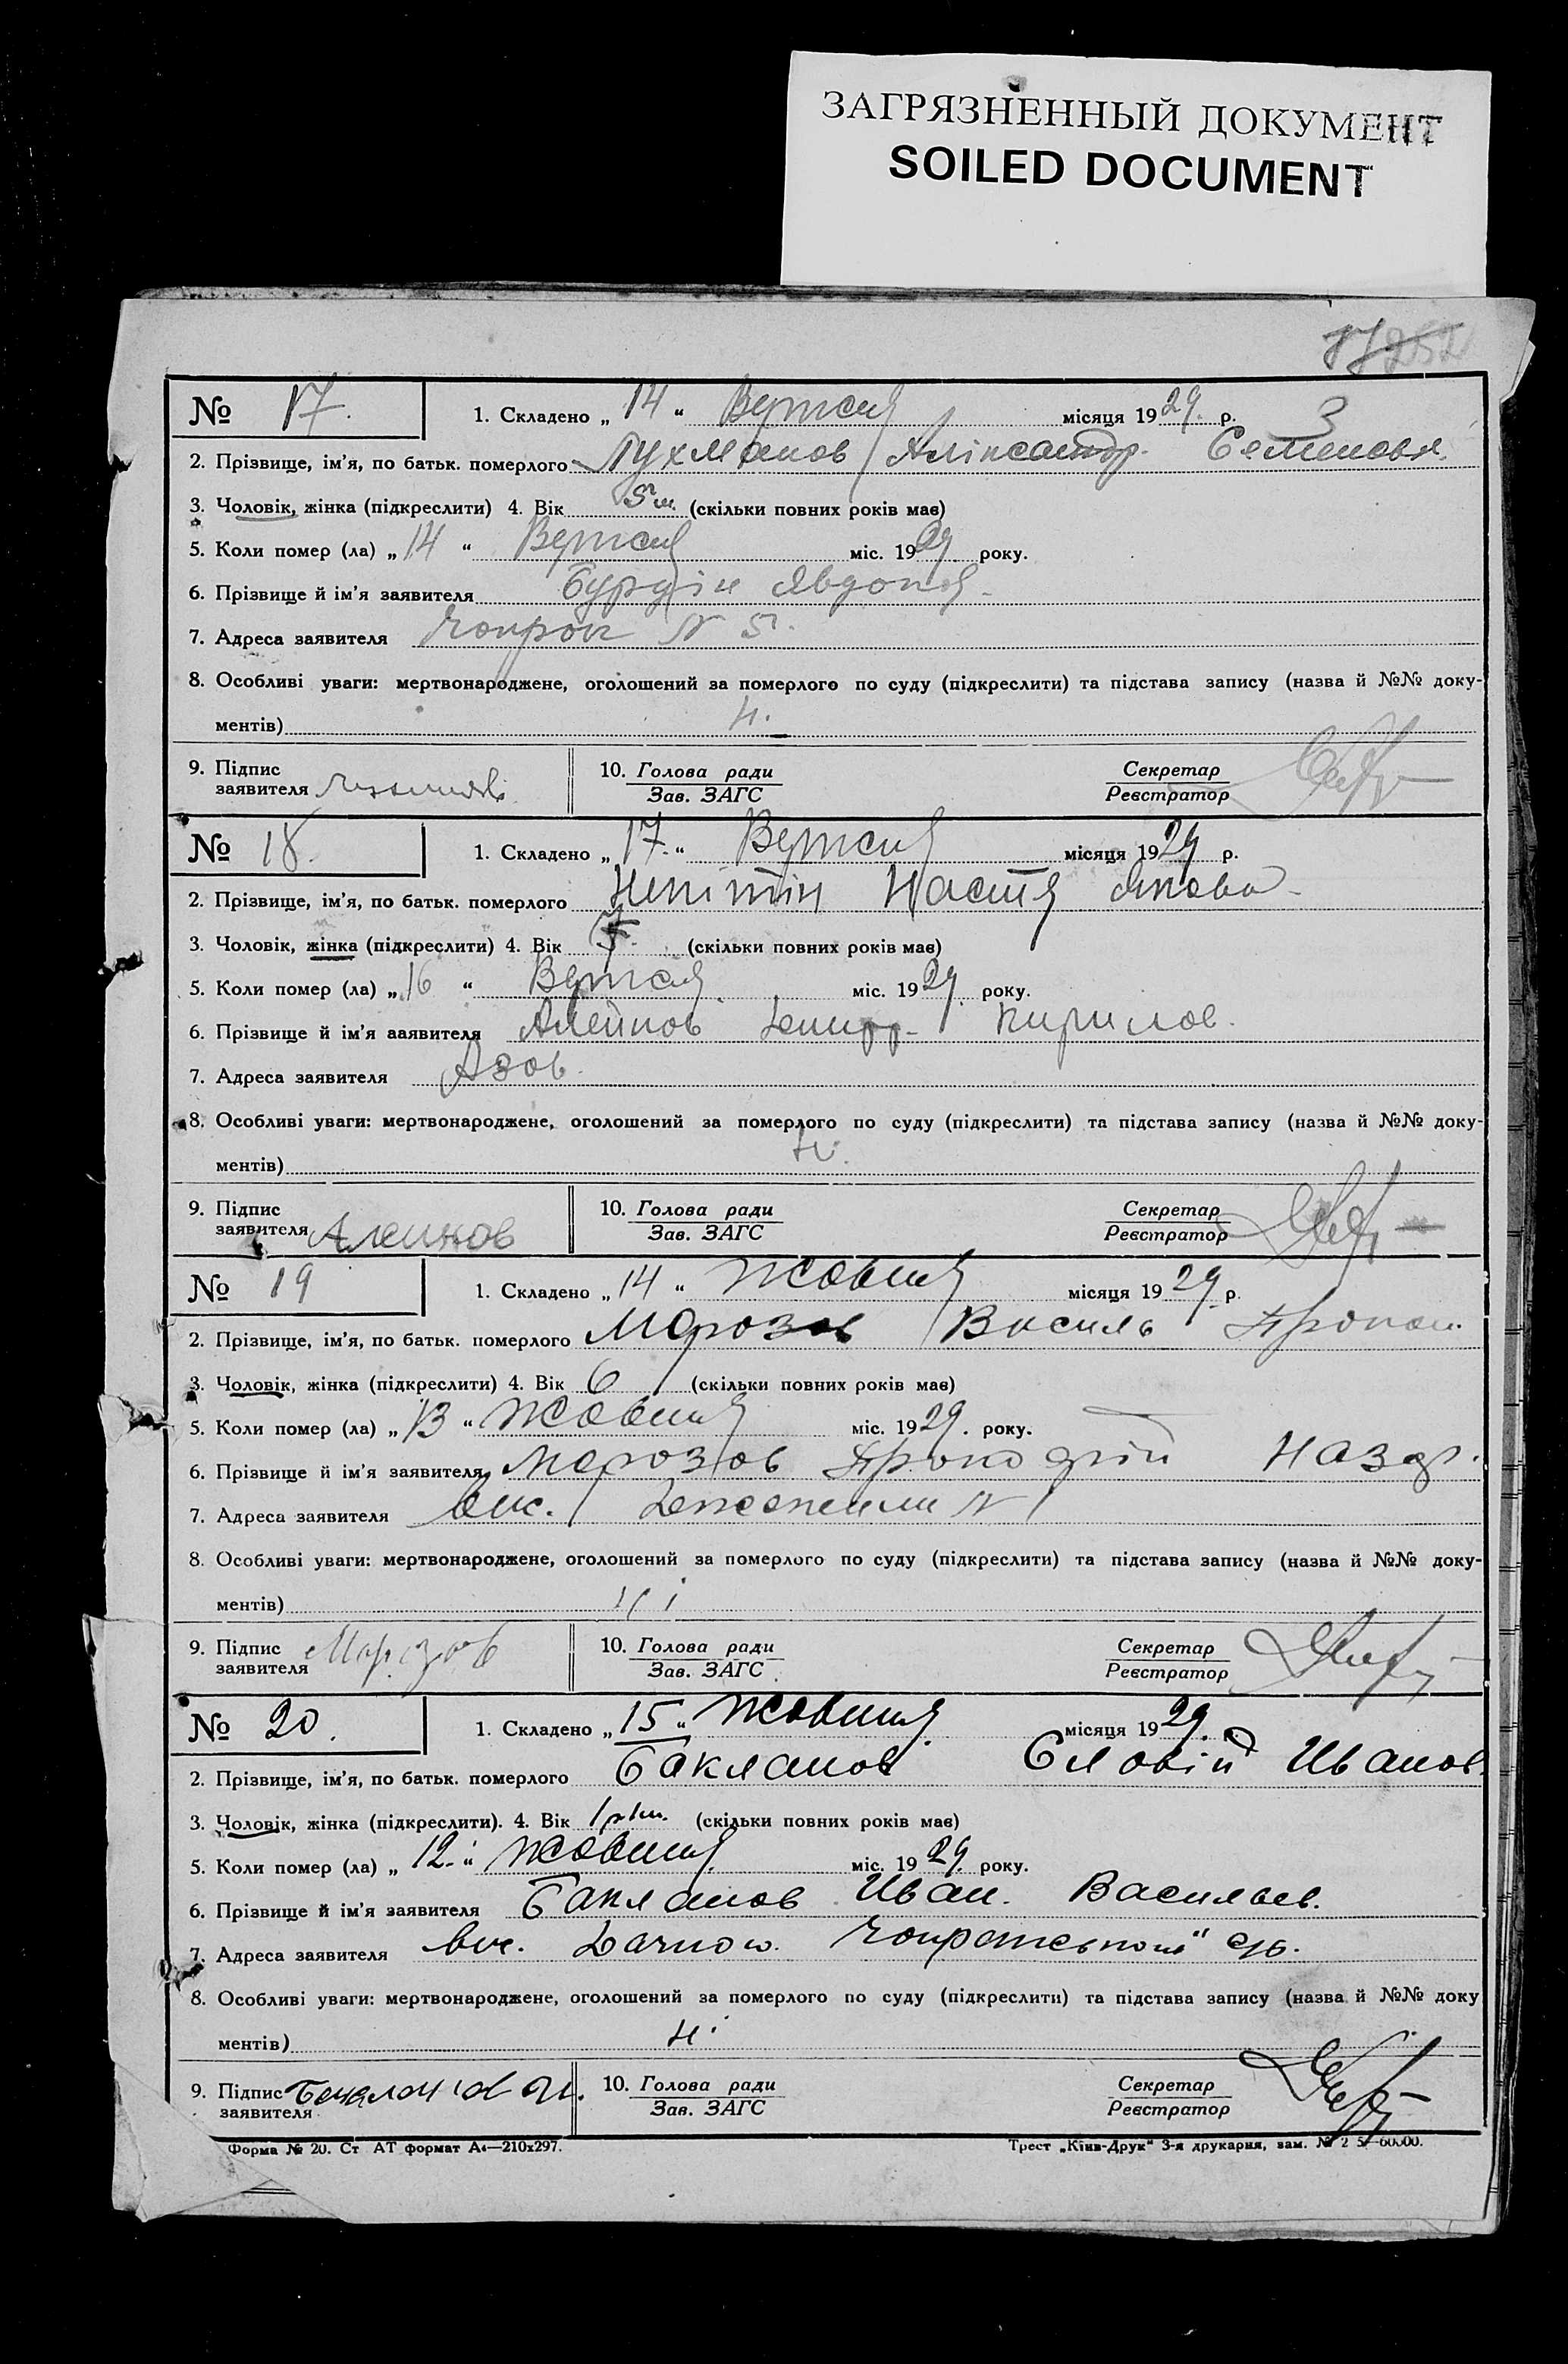 ЗАГРЯЗНЕННЫЙ ДОКУМЕНТ
SOILED DOCUMENT
17 252
№ 17. 1. Складено „ 14 “ Вересня місяця 1929. р. 3
2. Прізвище, ім’я, по батьк. померлого Пухманов Аліксандр. Семенов
3. Чоловік, жінка (підкреслити) 4. Вік 5 м. (скільки повних років має)
5. Коли помер (ла) „ 14 “ Вересня міс. 1929 року.
6. Прізвище й ім’я заявителя Бурдін Явдокія
7. Адреса заявителя Чокрок № 5.
8. Особливі уваги: мертвонароджене, оголошений за померлого по суду (підкреслити) та підстава запису (назва й №№ доку-
ментів) н.
9. Підпис заявителя
10. Голова ради Зав. ЗАГС
Секретар Реєстратор
№ 18. 1. Складено „ 17. “ Вересня місяця 1929 р.
2. Прізвище, ім’я, по батьк. померлого Нікітін Настя Якова
3. Чоловік, жінка (підкреслити) 4. Вік (скільки повних років має)
5. Коли помер (ла) „ 16 “ Вересня міс. 1929. року.
6. Прізвище й ім’я ааявителя Алейнов Кирилов.
7. Адреса заявителя Азов.
8. Особливі уваги: мертвонароджене, оголошений за померлого по суду (підкреслити) та підстава запису (назва й №№ доку-
ментів)
9. Підпис заявителя Алейнов
10. Голова ради Зав. ЗАГС
Секретар Реєстратор
№ 19 1. Складено „ 14 “ Жовтня місяця 1929. р.
2. Прізвище, ім’я, по батьк. померлого Морозов Василь Прокоп.
3. Чоловік, жінка (підкреслити) 4. Вік 6 (скільки повних років має)
5. Коли помер (ла) „ 13 “ Жовтня міс. 1929. року.
6. Прізвище й ім’я заявителя Морозов Назар.
7. Адреса заявителя вис. №
8. Особливі уваги: мертвонароджене, оголошений за померлого по суду (підкреслити) та підстава запису (назва й №№ доку-
ментів) ні
9. Підпис заявителя Морозов
10. Голова ради Зав. ЗАГС
Секретар Реєстратор
№ 20. 1. Складено „ 15 “ Жовтня місяця 1929.
2. Прізвище, ім’я, по батьк. померлого Бакланов Іванов.
3. Чоловік, жінка (підкреслити). 4. Вік 1 р 1 м. (скільки повних років має)
5. Коли помер (ла) „ 12. “ Жовтня міс. 1929. року.
6. Прізвище й ім’я заявителя Бакланов Иван. Васильев.
7. Адреса заявителя вис.
8. Особливі уваги: мертвонароджене, оголошений за померлого по суду (підкреслити) та підстава запису (назва й №№ доку
ментів) ні
9. Підпис заявителя
10. Голова ради Зав. ЗАГС
Секретар Реєстратор
Форма № 20. Ст АТ формат А4—210х297. Трест „Київ-Друк“ 3-я друкарня, зам. № 2 5—60000.